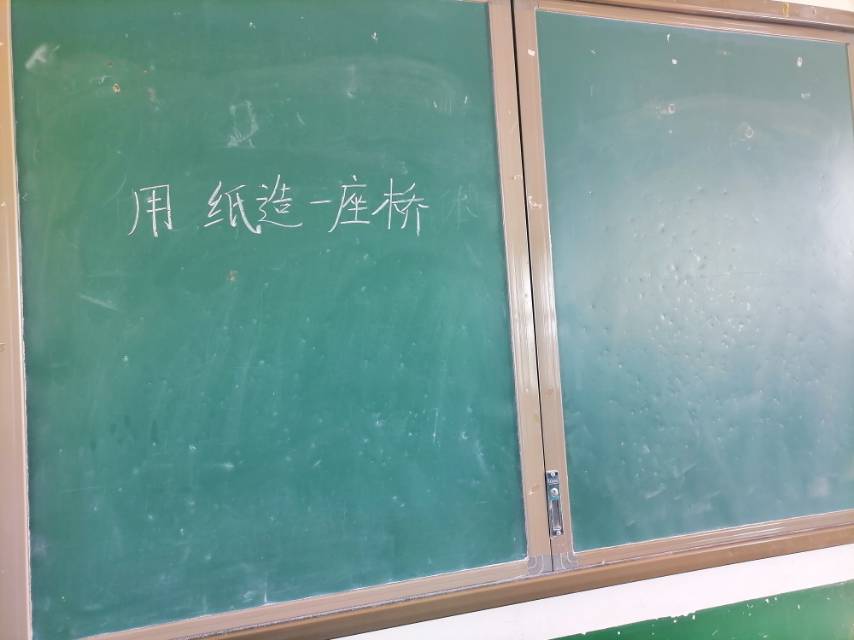 用纸造一座桥